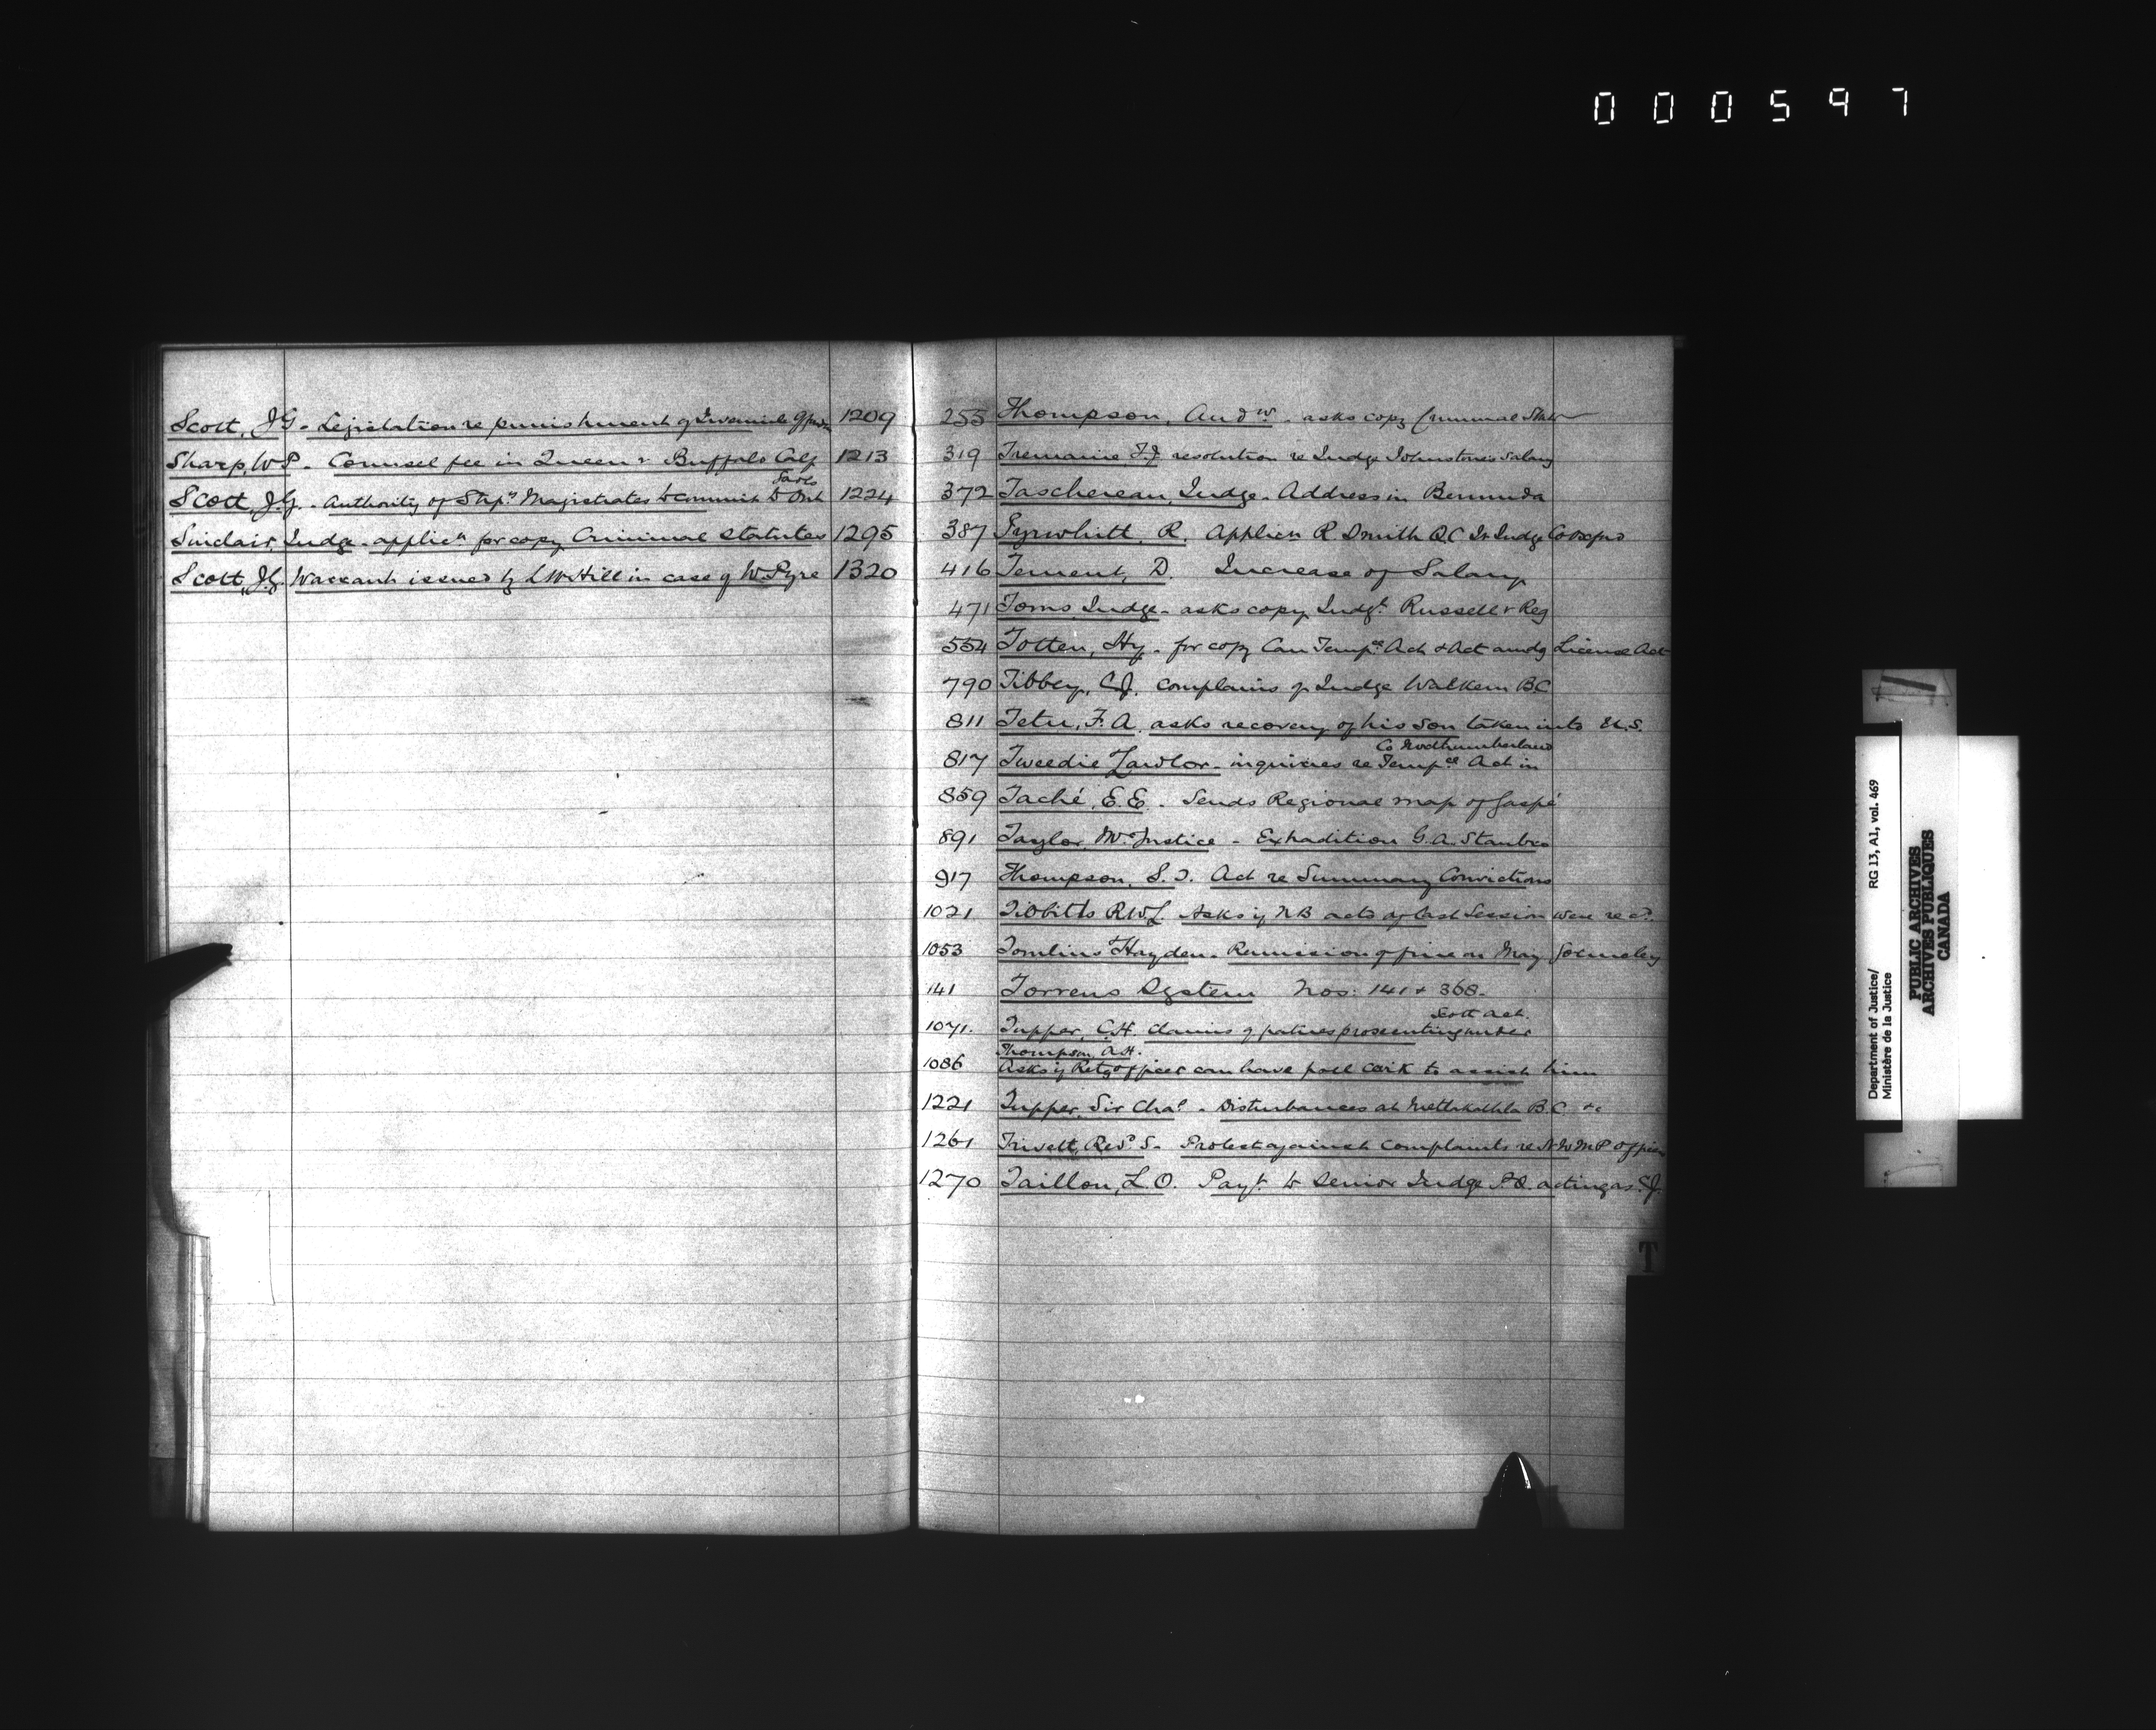 000597
Scott, J.G. - Legislation re punishment of Juvenile 1209
Sharp, W.P. - Counsel fee in Queen v Buffalo Calf 1213
Gaols
Scott, J.G. - Authority of Stip. Magistrates to commit to Ont 1224
Sinclair, Judge - applicn for copy Criminal Statutes 1295
Scott, J.G. Warrant issued by L W Hill in case of W. Pyre 1320
255 Thompson, Andw. - asks copy Criminal Stats
319 Tremaine, F.J. resolution re Judge Johnstone's Salary
372 Taschereau, Judge - Address in Bermuda
387 Tyrwhitt, R. Applicn R Smith Q.C. Jr Judge Co
416 Tement, D. Increase of Salary
471 Toms Judge - asks copy Judgt. Russell v Reg
554 Totten, Hy. - for copy Can Tempce Act & Act amdg License Act
790 Tibbey, C.J. complains of Judge Walkem BC
811 Tetu, F. A. asks recovery of his son taken into U.S.
Co Northumberland
817 Tweedie Lawlor - inquiries re Tempce Act in
859 Taché, E.E. - Sends Regional map of Gaspé
891 Taylor, Mr Justice - Extradition G.A. Stanbro
917 Thompson, S. J. Act re Summary Convictions
1021 Tibbitts R.W.L. Asks if N B acts of last Session were recd.
1053 Tomlins Hayden - Remission of fine on May
141 Torrens System Nos: 141 & 368.
Scott Act.
1071. Tupper, C.H. claims of parties prosecuting under
Thompson, A.H.
1086 Asks if Retg officer can have poll clerk to assist him
1221 Tupper, Sir Chas. - Disturbances at Metlakathla B.C. &c
1261 Trivett, Revd S. - Protest against complaints re N W M P Officers
1270 Taillon, L.O. Payt. to Senior Judge P.Q. acting as C.J.
T
Department of Justice/
Ministère de la Justice
RG 13, A1, vol. 469
PUBLIC ARCHIVES
ARCHIVES PUBLIQUES
CANADA